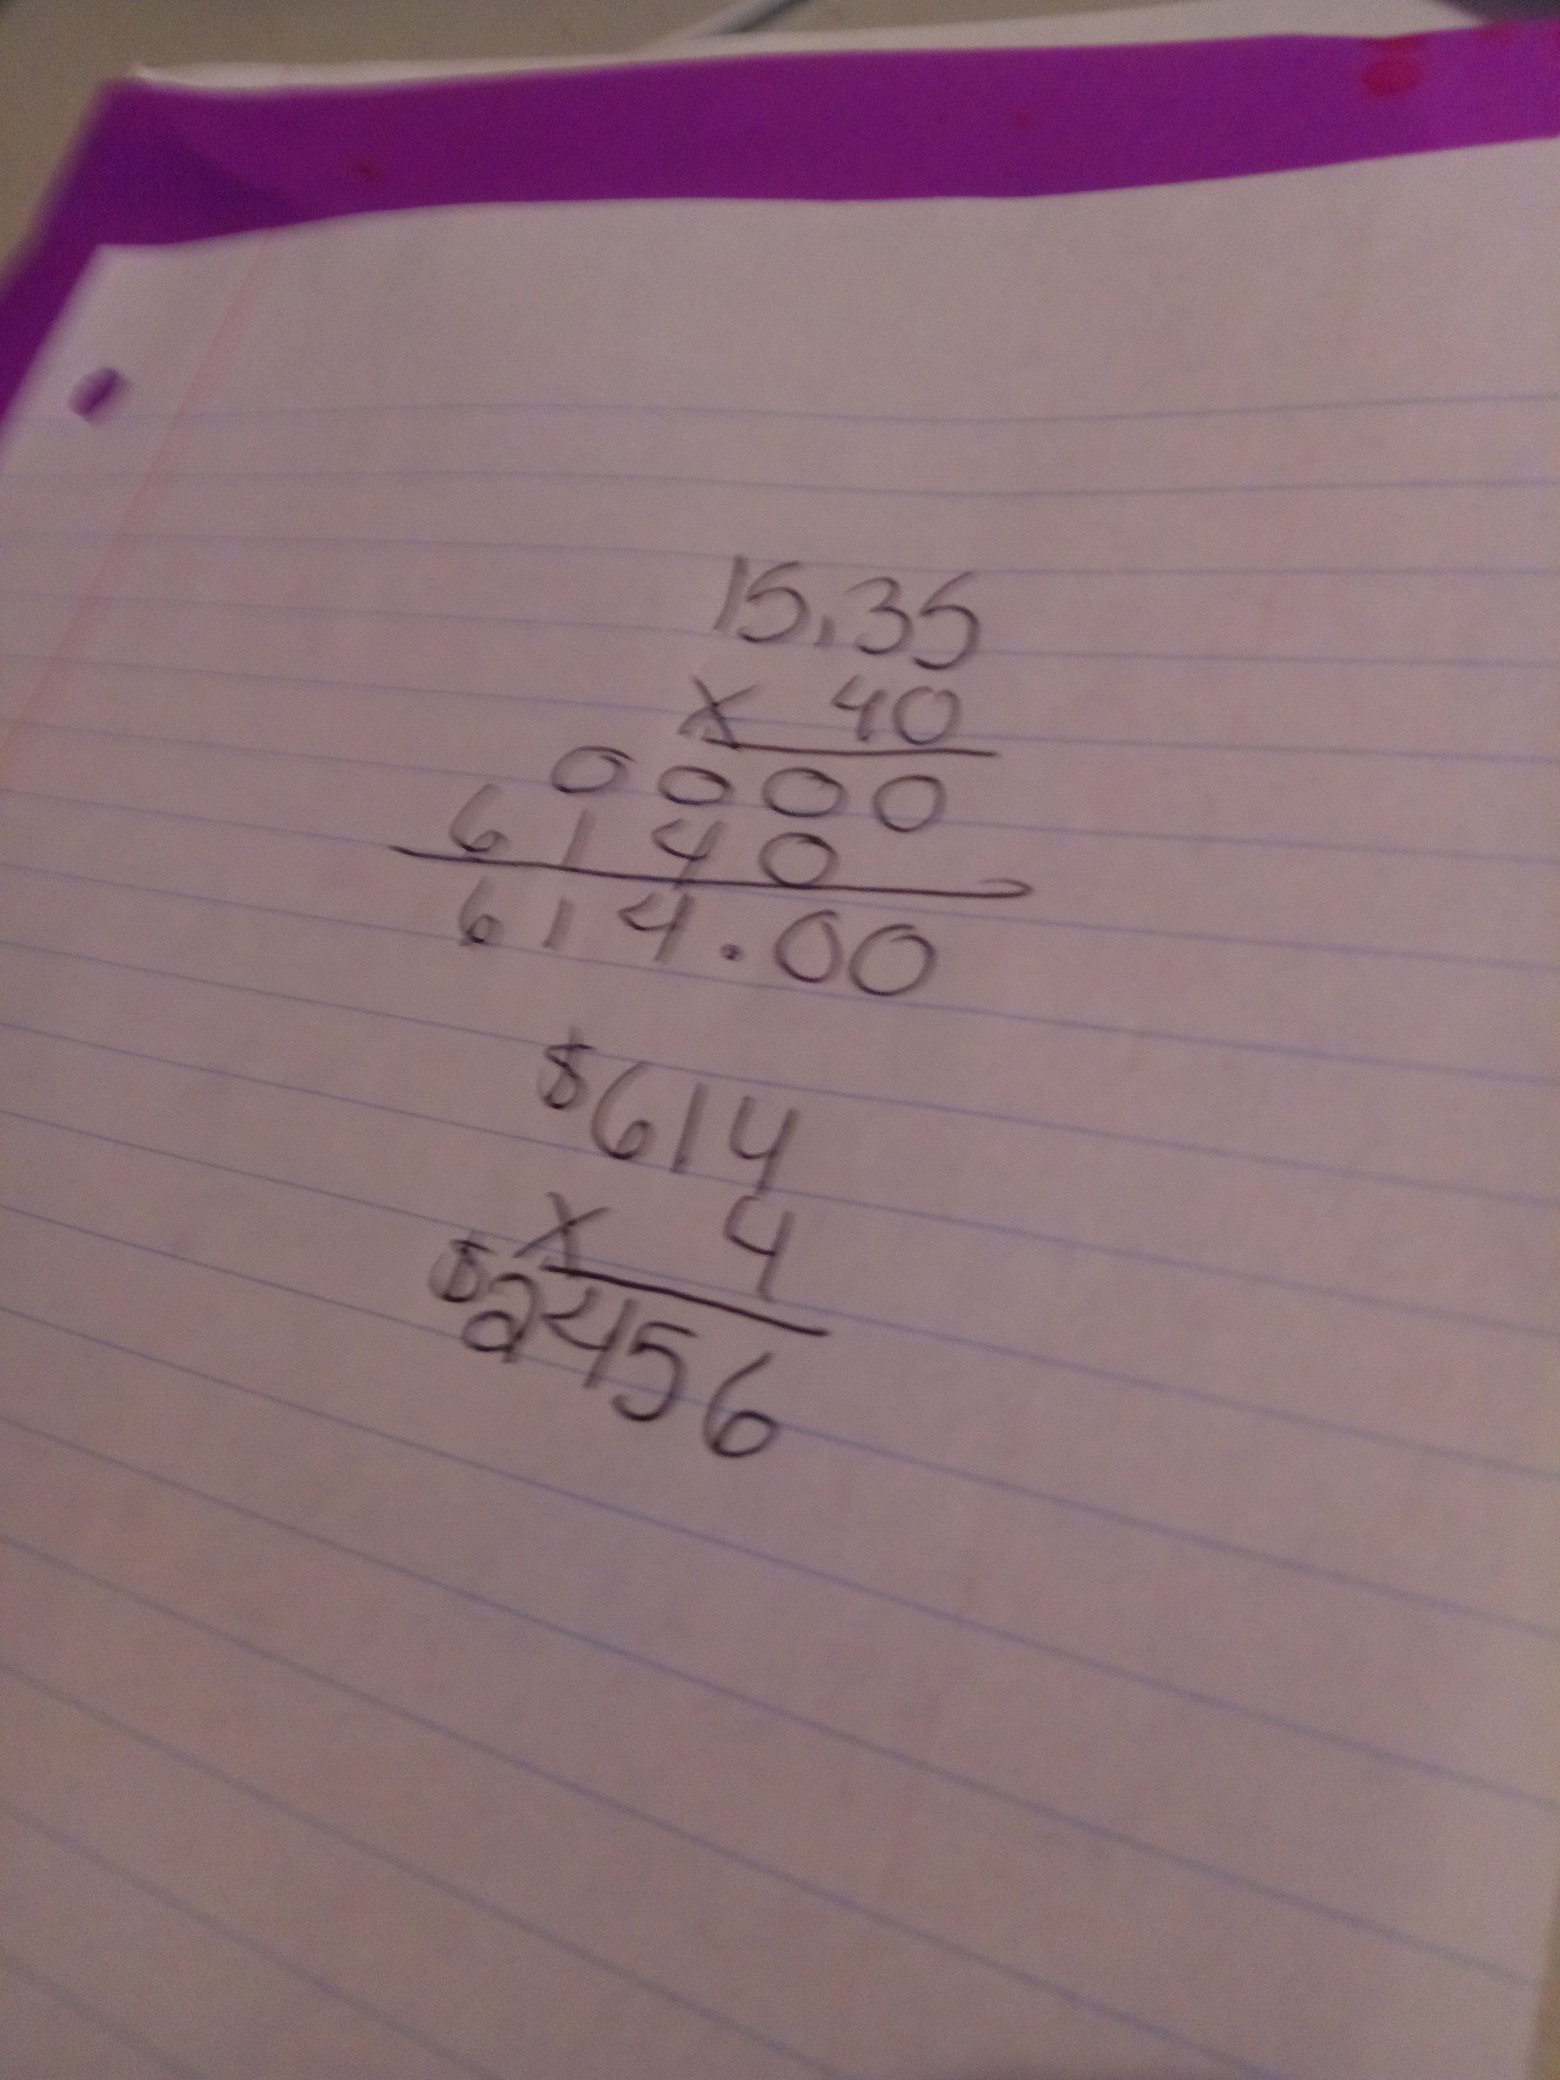 15.35
x 40
0000
6140
614.00
$614
x 4
$2456